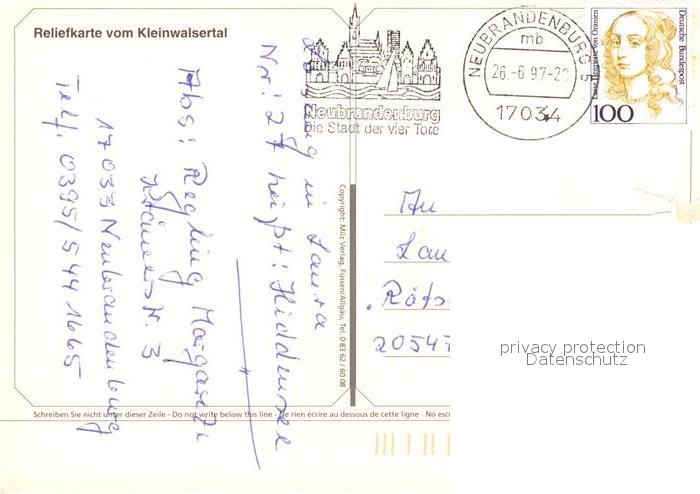 Reliefkarte vom Kleinwalsertal
Lösung in Laura
Nr: 27 heißt: Hiddensee
Abs: Regling Margarete
17033 Neubrandenburg
Telf. 0395/544 1665
Neubrandenburg
Die Stadt der vier Tore
NEUBRANDENBURG 5
mb
26.-6 97-20
17034
Deutsche Bundespost
Luise Henriette von Oranien
100
Copyright: Milz Verlag, Füssen/Allgäu, Tel. 0 83 62 / 60 08
An
Lau
Räts
20547
privacy protection
Datenschutz
Schreiben Sie nicht unter dieser Zeile - Do not write below this line - Ne rien écrire au dessous de cette ligne - No esc